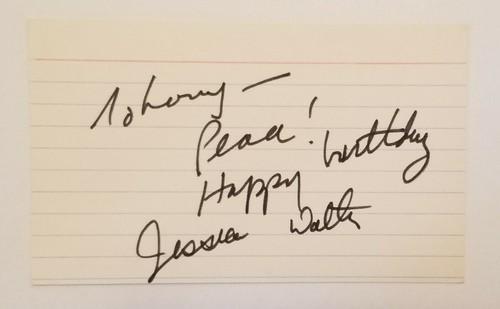 To Larry —
Peace!
Happy birthday
Jessica Walter